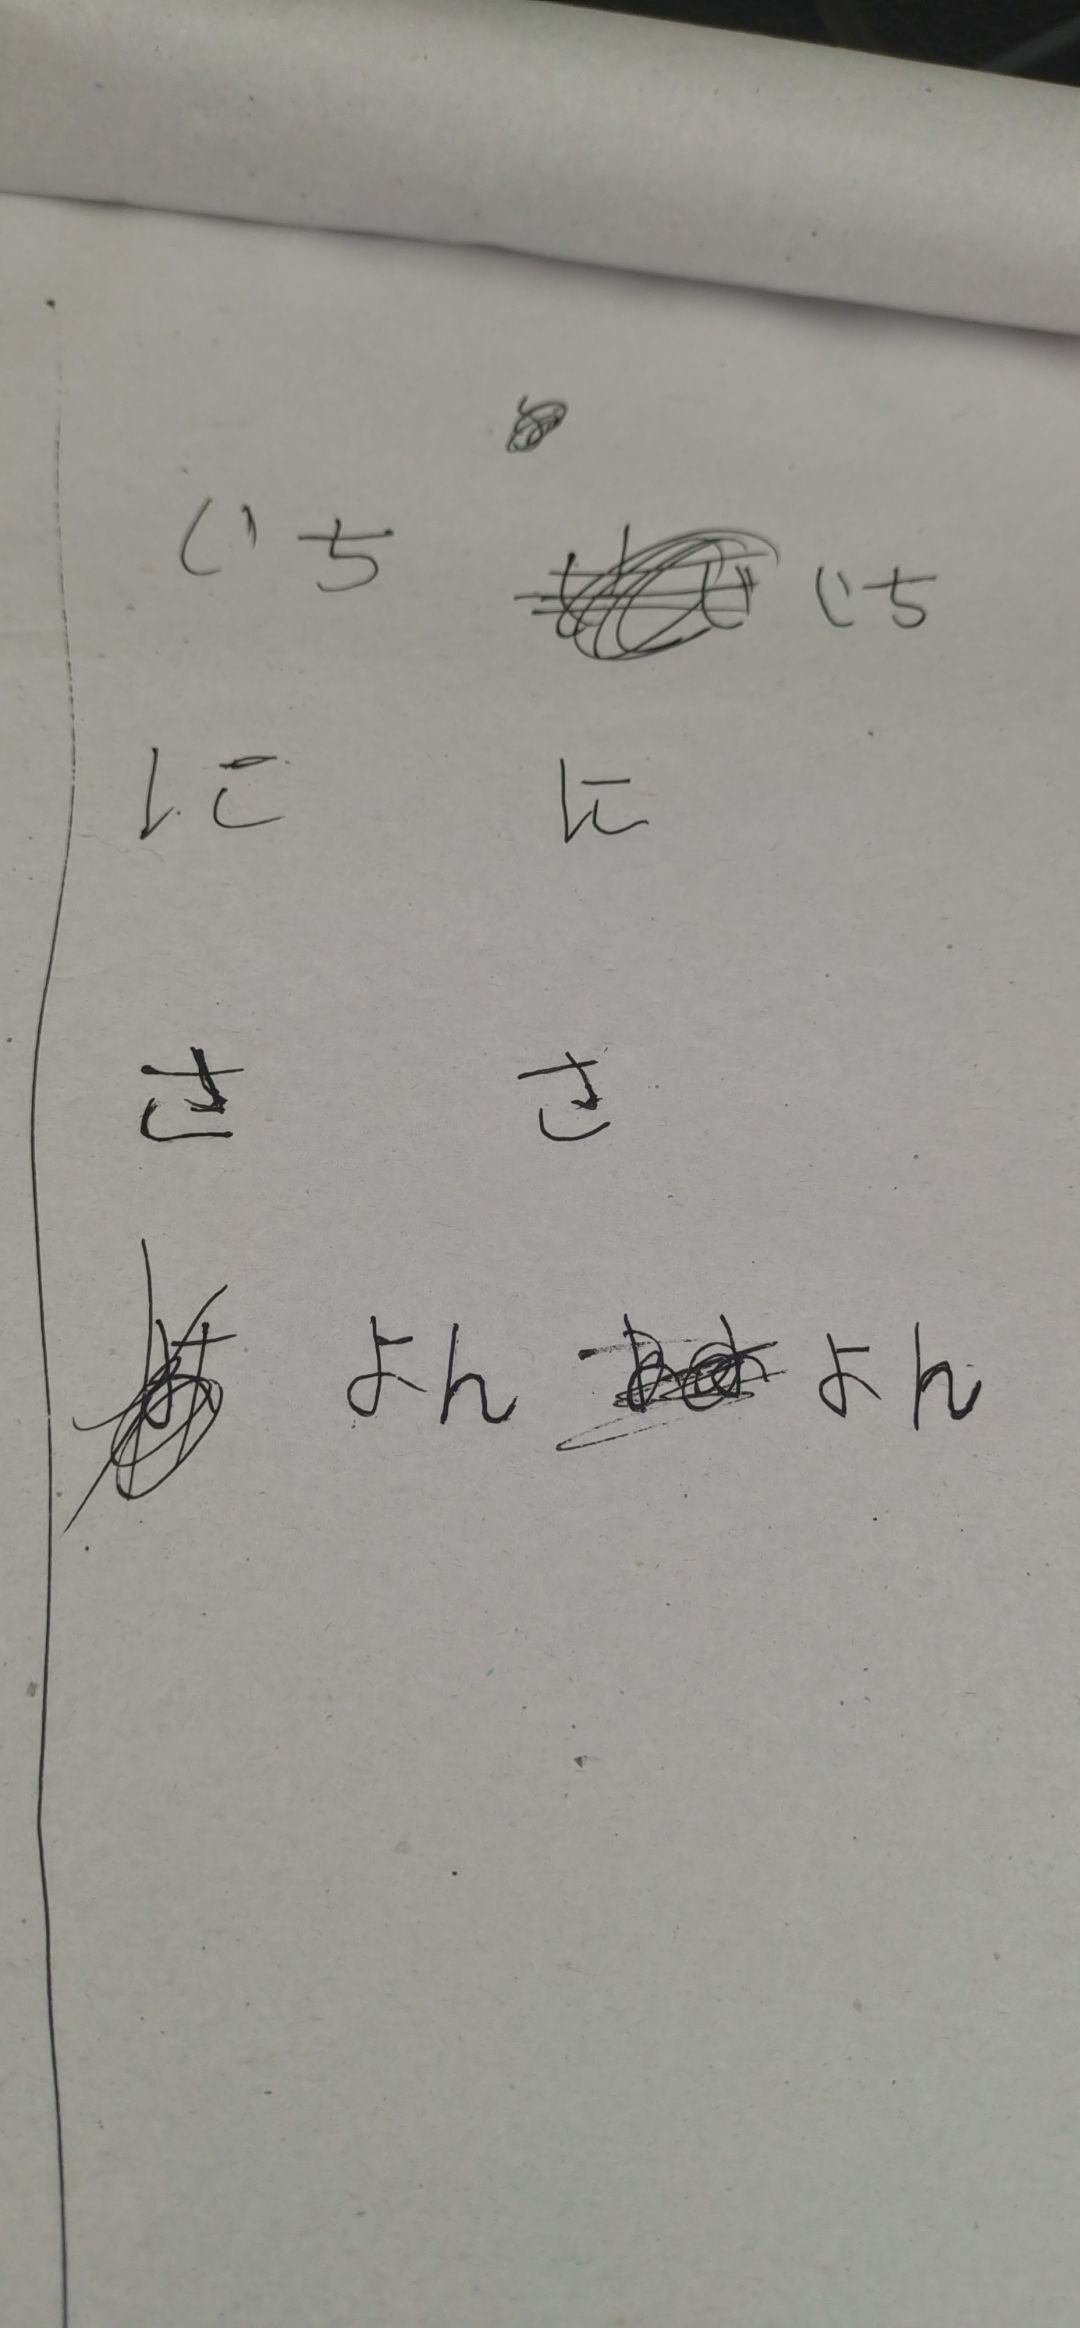 いち いち
に に
さ さ
よん よん